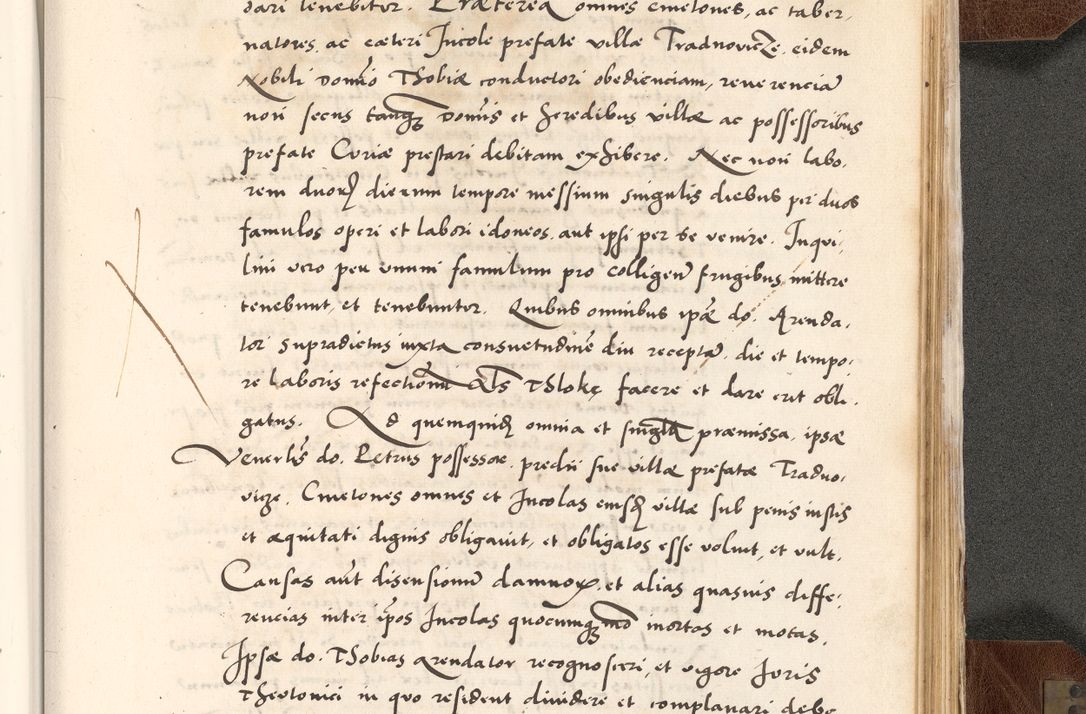 dari tenebitor. Præterea omnes cmetones, ac taber-
natores, ac cæteri Incole prefate villæ Tradnovicze, eidem
Nobili domino Thobiæ conductori obedienciam, reverenciā
non secus tanqȝ dominis et heredibus villæ ac possessoribus
prefate Curiæ prestari debitam exhibere. Nec non labo-
rem duorū dierum tempore messium singulis diebus per duos
famulos operi et labori idoneos, aut ipsi per se venire. Inqui-
lini vero per unum famulum pro colligenᵈ frugibus mittere
tenebunt, et tenebuntor. Quibus omnibus ipse do. Arenda-
tor supradictus iuxta consuetudinē diu receptā, die et tempo-
re laboris refectionē als Thlokę facere et dare erit obli-
gatus. Ad quemquidē omnia et singla præmissa, ipsæ
Venerlis do. Petrus possessor, predii sue villæ prefatæ Tradno-
vicze, Cmetones omnes et Incolas eiusdē villæ sub penis iustis
et æquitati dignis obligavit, et obligatos esse voluit, et vult.
Causas aūt disensionū damnorū, et alias quasvis diffe-
rencias inter ipos Incolas quocunqȝ modo inortas et motas,
Ipsæ do. Thobias Arendator recognosceri, et vigore Joris
Theotonici in quo resident dividere et complanari debe